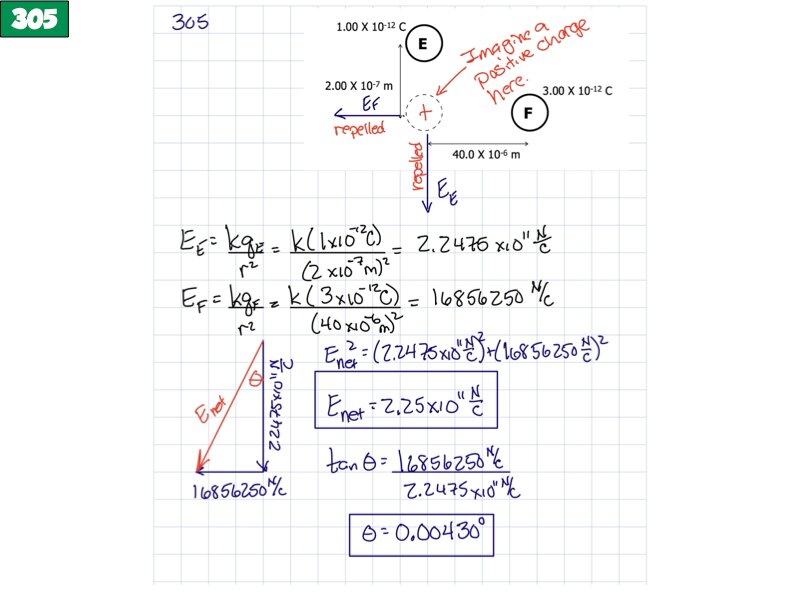 305
305
1.00 X 10⁻¹² C
E
Imagine a
positive charge
here.
2.00 X 10⁻⁷ m
E_F
repelled
+
F
3.00 X 10⁻¹² C
40.0 X 10⁻⁶ m
repelled
E_E
E_E = kq_E/r² = k(1x10⁻¹²C)/(2x10⁻⁷m)² = 2.2475x10¹¹ N/C
E_F = kq_F/r² = k(3x10⁻¹²C)/(40x10⁻⁶m)² = 16856250 N/C
E_net² = (2.2475x10¹¹ N/C)² + (16856250 N/C)²
E_net = 2.25x10¹¹ N/C
θ
E_net
2.2475x10¹¹ N/C
16856250 N/C
tan θ = 16856250 N/C / 2.2475x10¹¹ N/C
θ = 0.00430°